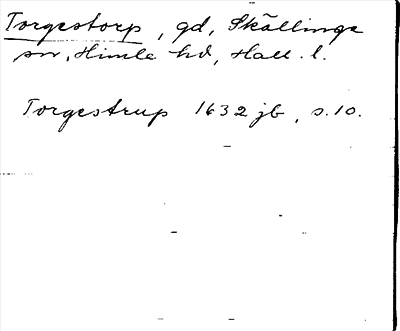 Torgestorp, gd, Skällinge
sn, Himle hd, Hall. l.
Torgestrup 1632 jb, s. 10.